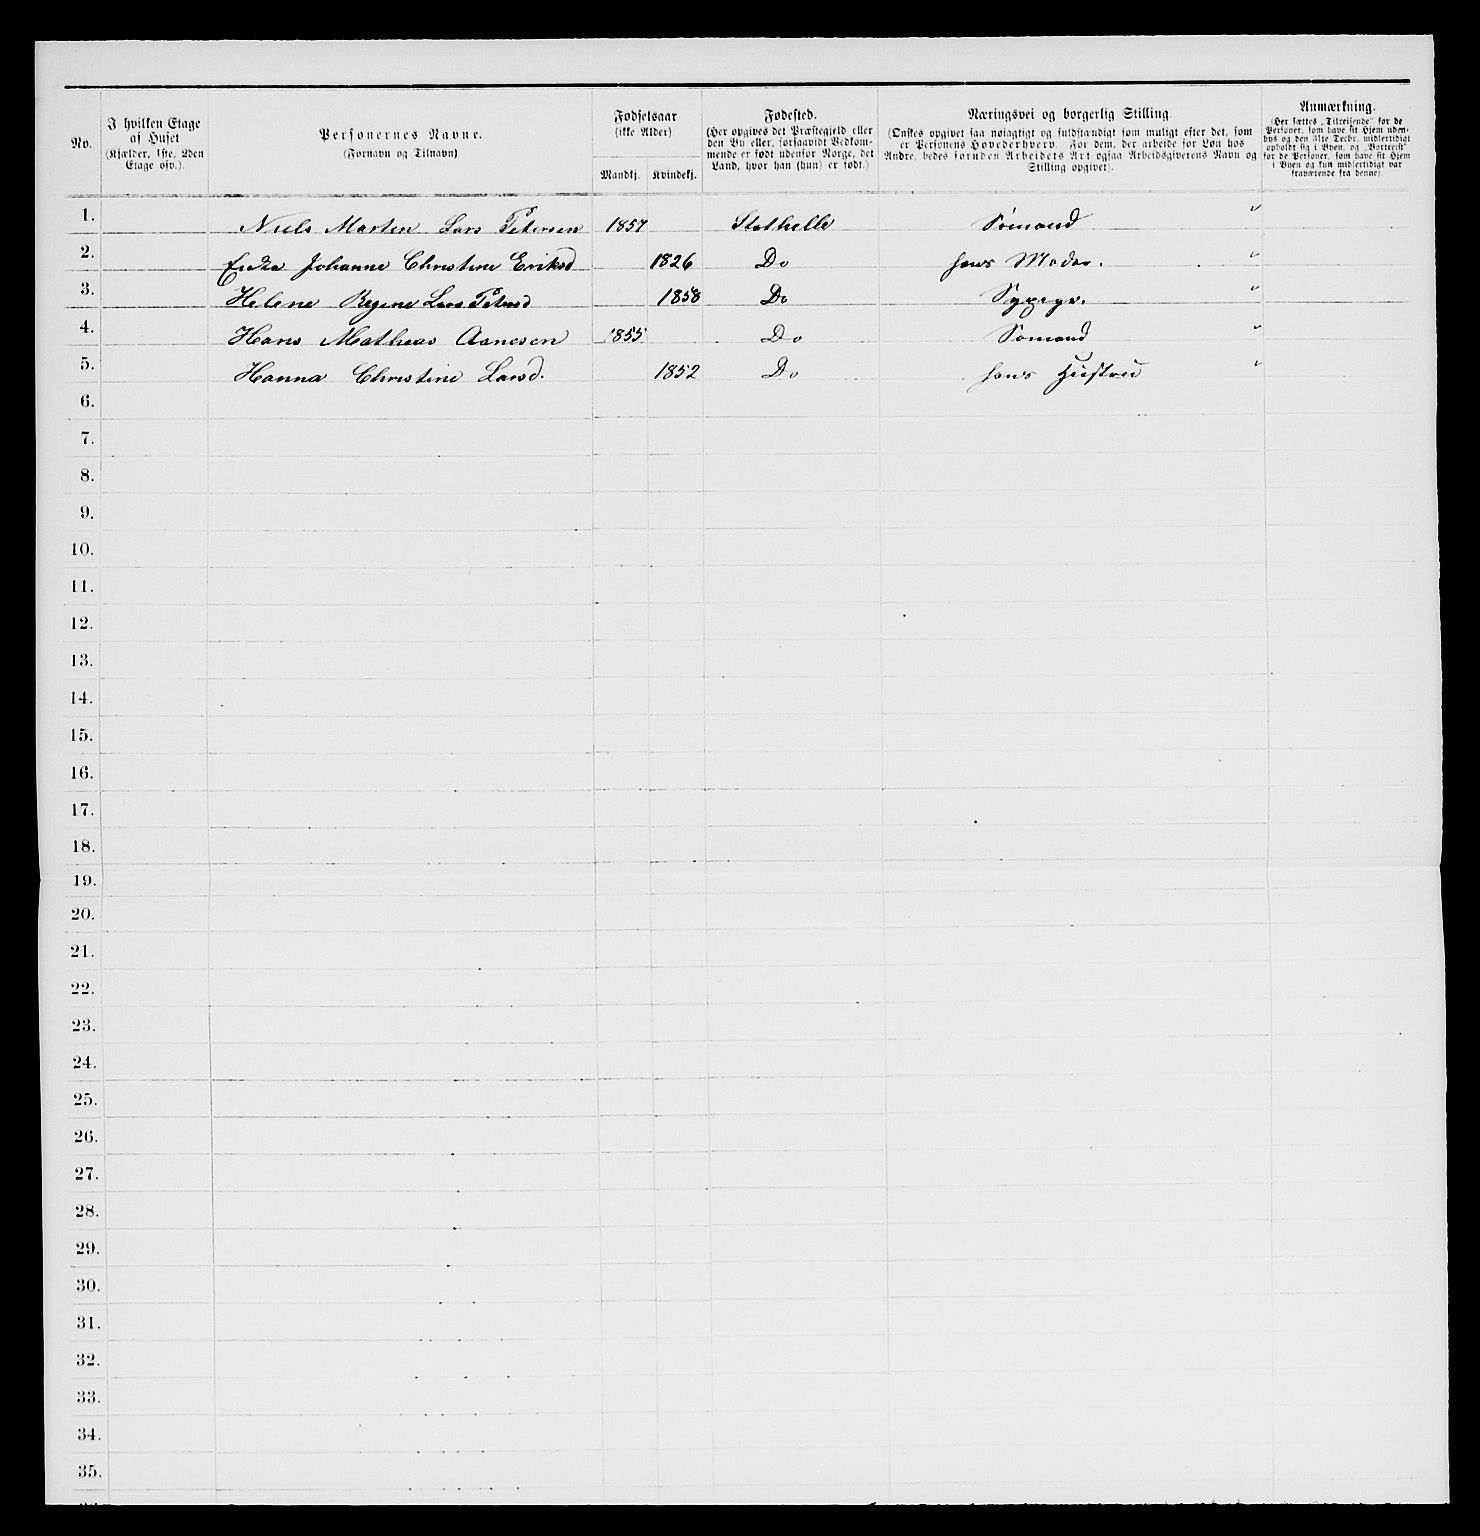 No.
I hvilken Etage
af Huset
(Kjælder, 1ste, 2den
Etage osv.).
Personernes Navne.
(Fornavn og Tilnavn)
Fødselsaar
(ikke Alder)
Mandkj.
Kvindekj.
Fødested.
(Her opgives det Præstegjeld eller
den By eller, forsaavidt Vedkom-
mende er født udenfor Norge, det
Land, hvor han (hun) er født.)
Næringsvei og borgerlig Stilling.
(Ønskes opgivet saa nøiagtigt og fuldstændigt som muligt efter det, som
er Personens Hovederhverv. For dem, der arbeide for Løn hos
Andre, bedes foruden Arbeidets Art ogsaa Arbeidsgiverens Navn og
Stilling opgivet).
Anmærkning.
(Her sættes „Tilreisende“ for de
Personer, som have sit Hjem uden-
bys og den 31te Decbr. midlertidigt
opholdt sig i Byen, og „Bortreist“
for de Personer, som have sit Hjem
i Byen og kun midlertidigt var
fraværende fra denne).
1. Niels Marten Lars Petersen 1857 Stathelle Sømand "
2. Enke Johanne Christine Eriksd 1826 Do hans Moder. "
3. Helene Regine Lars Petersd 1858 Do Sypige. "
4. Hans Mathias Aanesen 1855 Do Sømand "
5. Hanna Christine Larsd. 1852 Do hans Hustru "
6.
7.
8.
9.
10.
11.
12.
13.
14.
15.
16.
17.
18.
19.
20.
21.
22.
23.
24.
25.
26.
27.
28.
29.
30.
31.
32.
33.
34.
35.